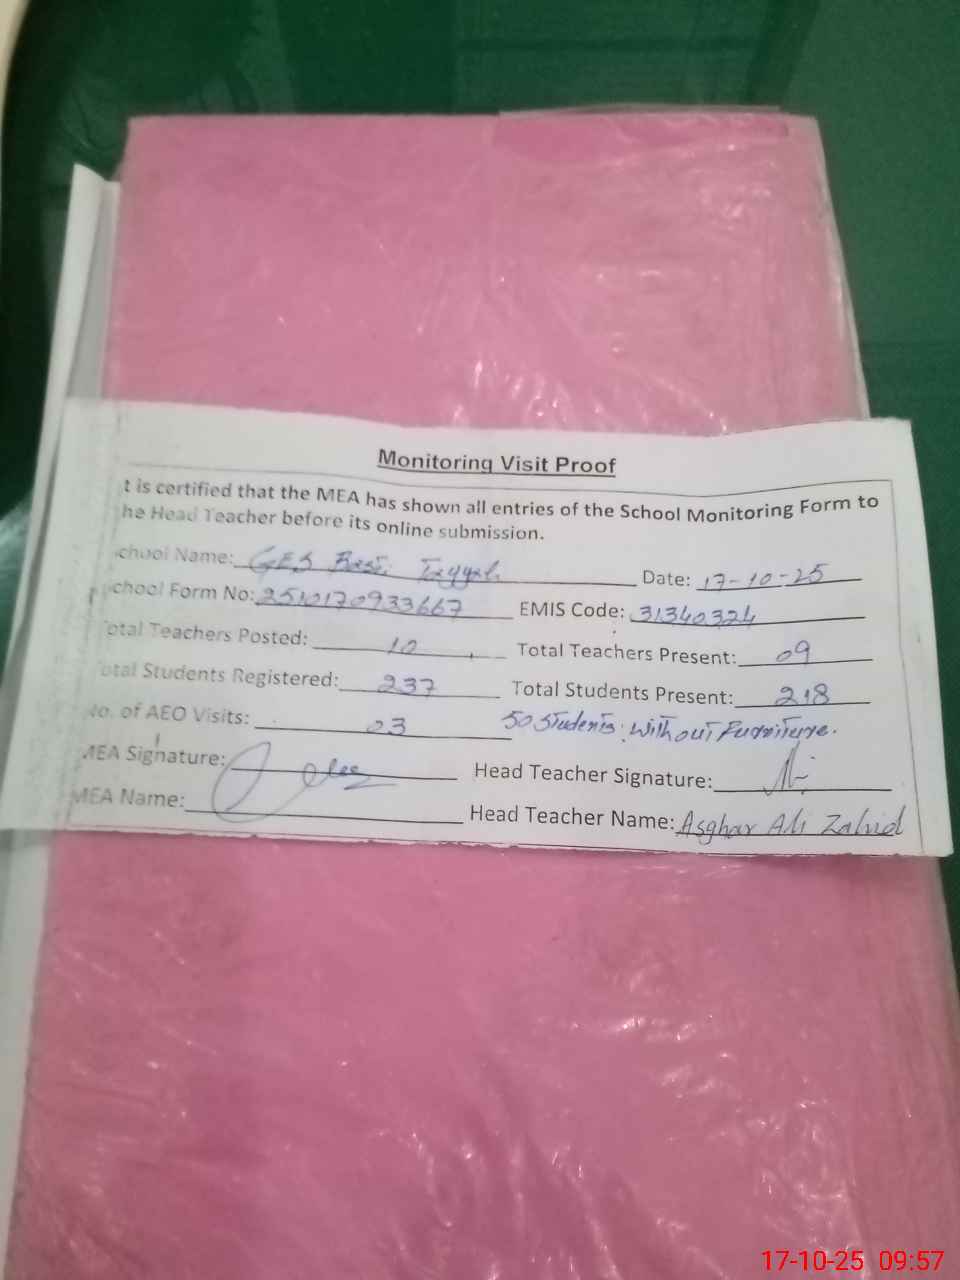 Monitoring Visit Proof
t is certified that the MEA has shown all entries of the School Monitoring Form to
he Head Teacher before its online submission.
chool Name: GES Basti Date: 17-10-25
chool Form No: 2510170933667 EMIS Code: 31340324
otal Teachers Posted: 10 Total Teachers Present: 09
otal Students Registered: 237 Total Students Present: 218
No. of AEO Visits: 03 50 Students without Furniture.
MEA Signature: Head Teacher Signature:
MEA Name: Head Teacher Name: Asghar Ali Zahid
17-10-25 09:57